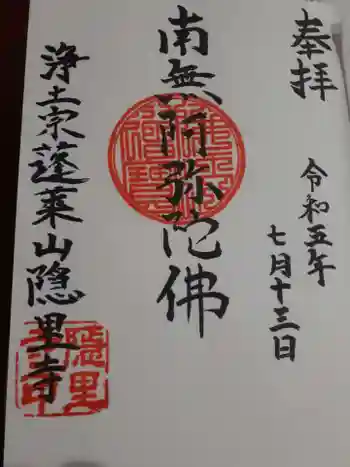 奉拝
令和五年
七月十三日
南無阿弥陀佛
浄土宗蓬莱山隐里寺